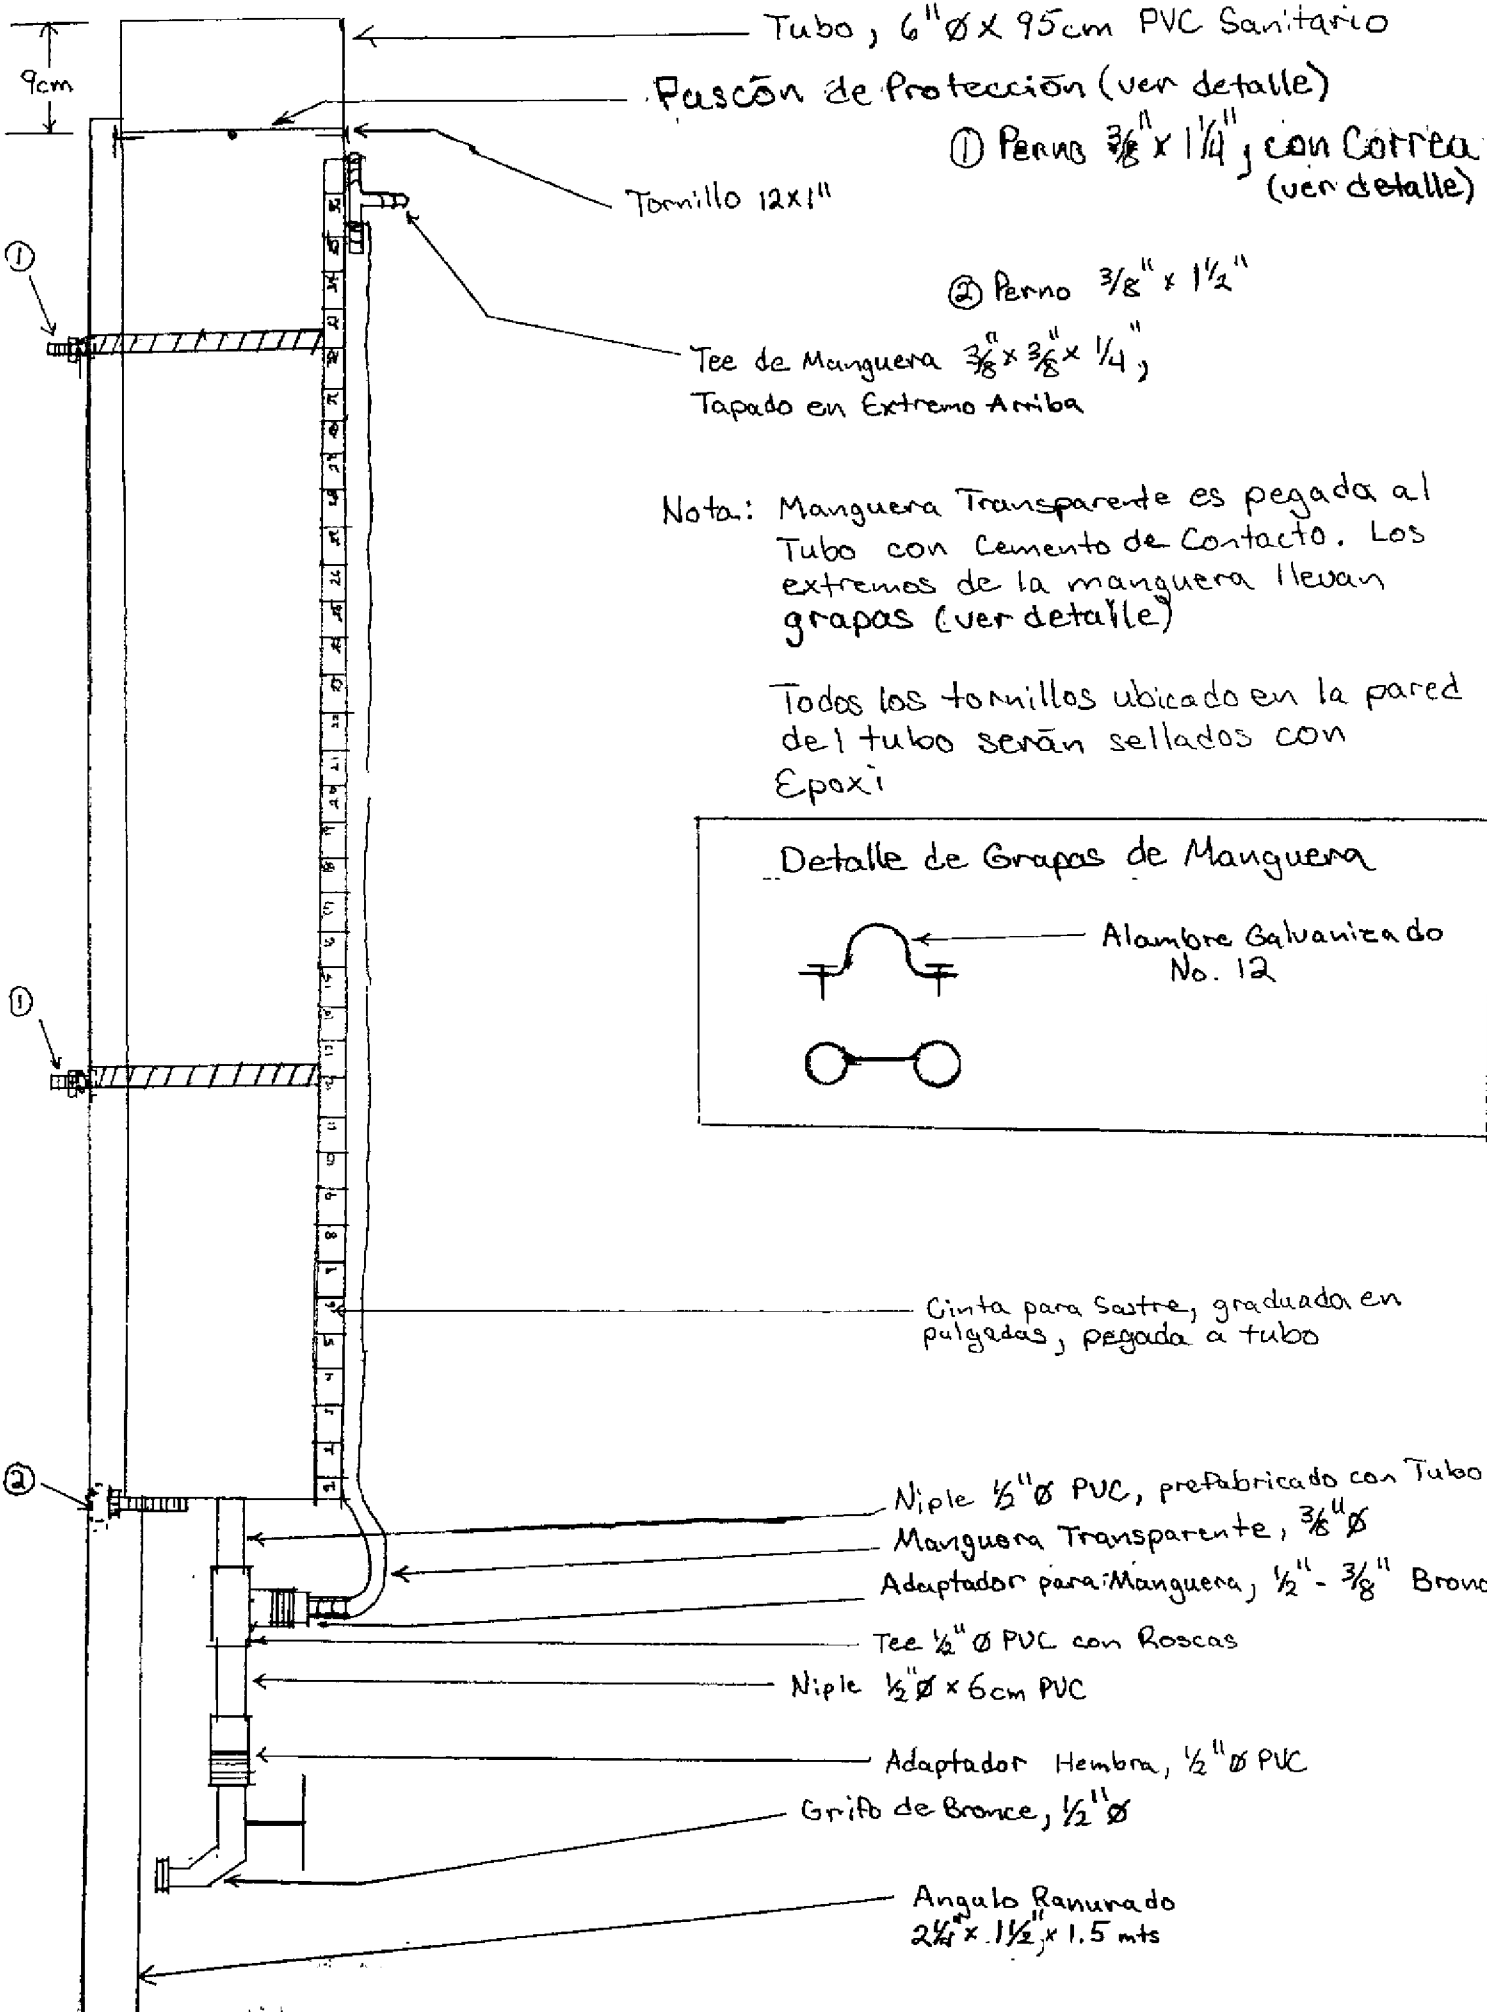 Tubo, 6"Ø x 95cm PVC Sanitario
9cm
Pascón de Protección (ver detalle)
① Perno 3/8" x 1 1/4", con Correa
(ver detalle)
Tornillo 12x1"
①
② Perno 3/8" x 1 1/2"
Tee de Manguera 3/8" x 3/8" x 1/4",
Tapado en Extremo Arriba
Nota: Manguera Transparente es pegada al
Tubo con Cemento de Contacto. Los
extremos de la manguera llevan
grapas (ver detalle)
Todos los tornillos ubicado en la pared
del tubo serán sellados con
Epoxi
Detalle de Grapas de Manguera
Alambre Galvanizado
No. 12
①
26
22
21
8
5
Cinta para Sastre, graduada en
pulgadas, pegada a tubo
②
Niple 1/2"Ø PVC, prefabricado con Tubo
Manguera Transparente, 3/8"Ø
Adaptador para Manguera, 1/2" - 3/8" Bronc
Tee 1/2"Ø PVC con Roscas
Niple 1/2"Ø x 6cm PVC
Adaptador Hembra, 1/2"Ø PVC
Grifo de Bronce, 1/2"Ø
Angulo Ranurado
2 1/4" x 1 1/2" x 1.5 mts